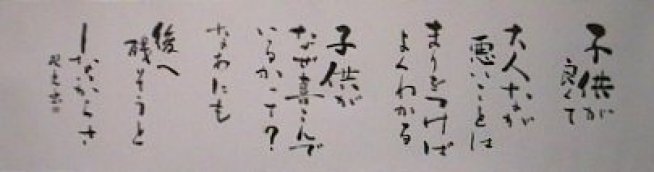 子供が
良くて
大人なが
悪いことは
まりをつけば
よくわかる
子供が
なぜ喜こんで
いるかって？
なわにも
後へ
残そうと
しなからさ